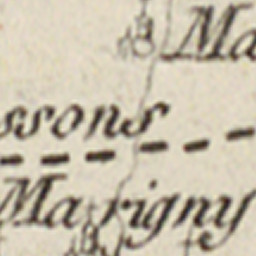 Ma
ssons
Marigny